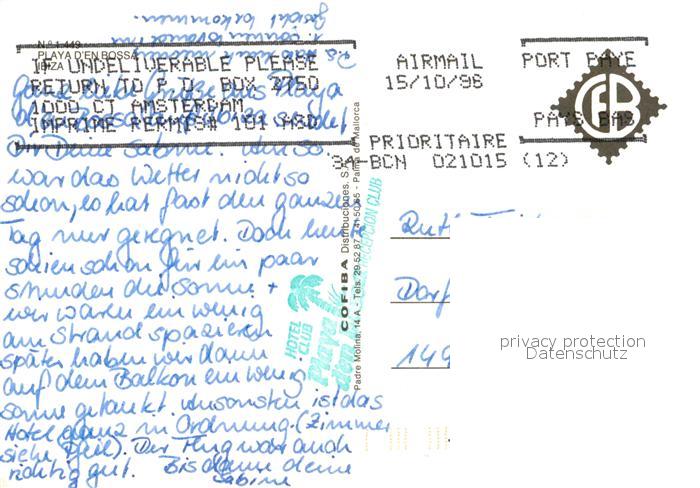 P.S. haben
können
gesicht bekommen.
N.º 1.449
PLAYA D'EN BOSSA
IBIZA
IF UNDELIVERABLE PLEASE
RETURN TO P.O. BOX 2750
1000 CT AMSTERDAM
IMPRIME PERMIS# 101 ASD
AIRMAIL
15/10/96
PORT PAYE
PAYS BAS
CFB
PRIORITAIRE
34-BCN 021015 (12)
liebe Grüße aus Playa
d'en Bossa Ibiza sendet
Dir Deine Sabine.
war das Wetter nicht so
schön, es hat fast den ganzen
Tag nur geregnet. Doch heute
schien schon für ein paar
Stunden die Sonne +
wir waren ein wenig
am Strand spazieren
später haben wir dann
auf dem Balkon ein wenig
Sonne getankt. Ansonsten ist das
Hotel ganz in Ordnung. (Zimmer
siehe Pfeil). Der Flug war auch
richtig gut. Bis dann deine
Sabine
HOTEL
CLUB
Playa
d'en
RECEPCION CLUB
COFIBA Distribuciones, S.A.
Padre Molina, 14 A - Tels. 29 52 87 / 41 50 65 - Palma de Mallorca
Ruti
Dorf
149
privacy protection
Datenschutz